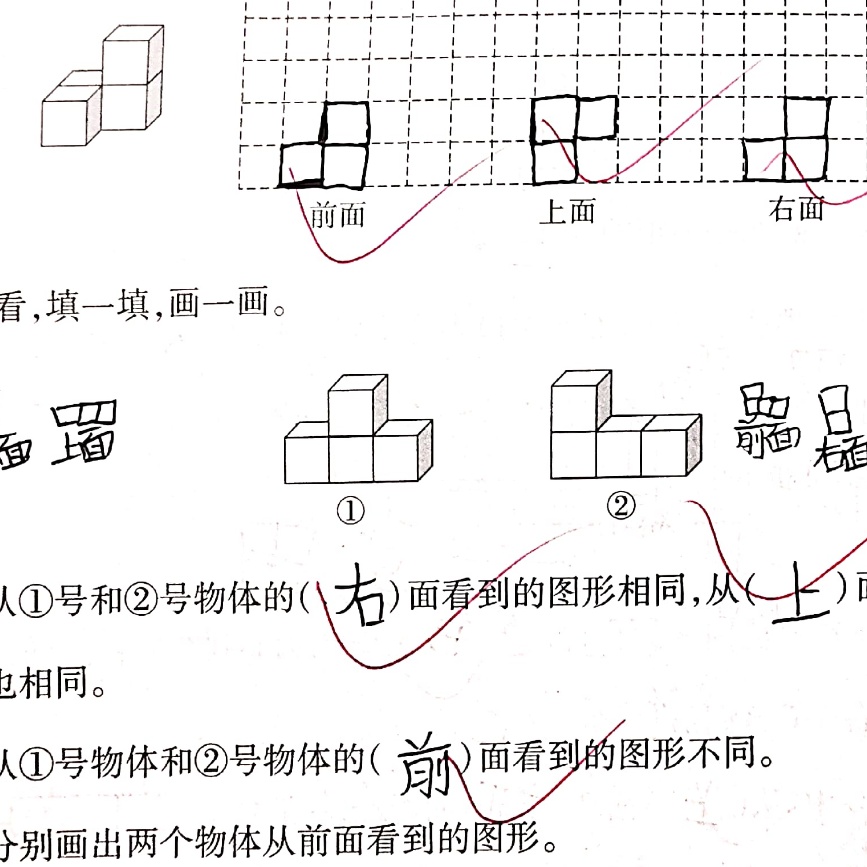 前面 上面 右面
看,填一填,画一画。
面 上面 前面 右面
① ②
从①号和②号物体的(右)面看到的图形相同,从(上)面
也相同。
从①号物体和②号物体的(前)面看到的图形不同。
分别画出两个物体从前面看到的图形。